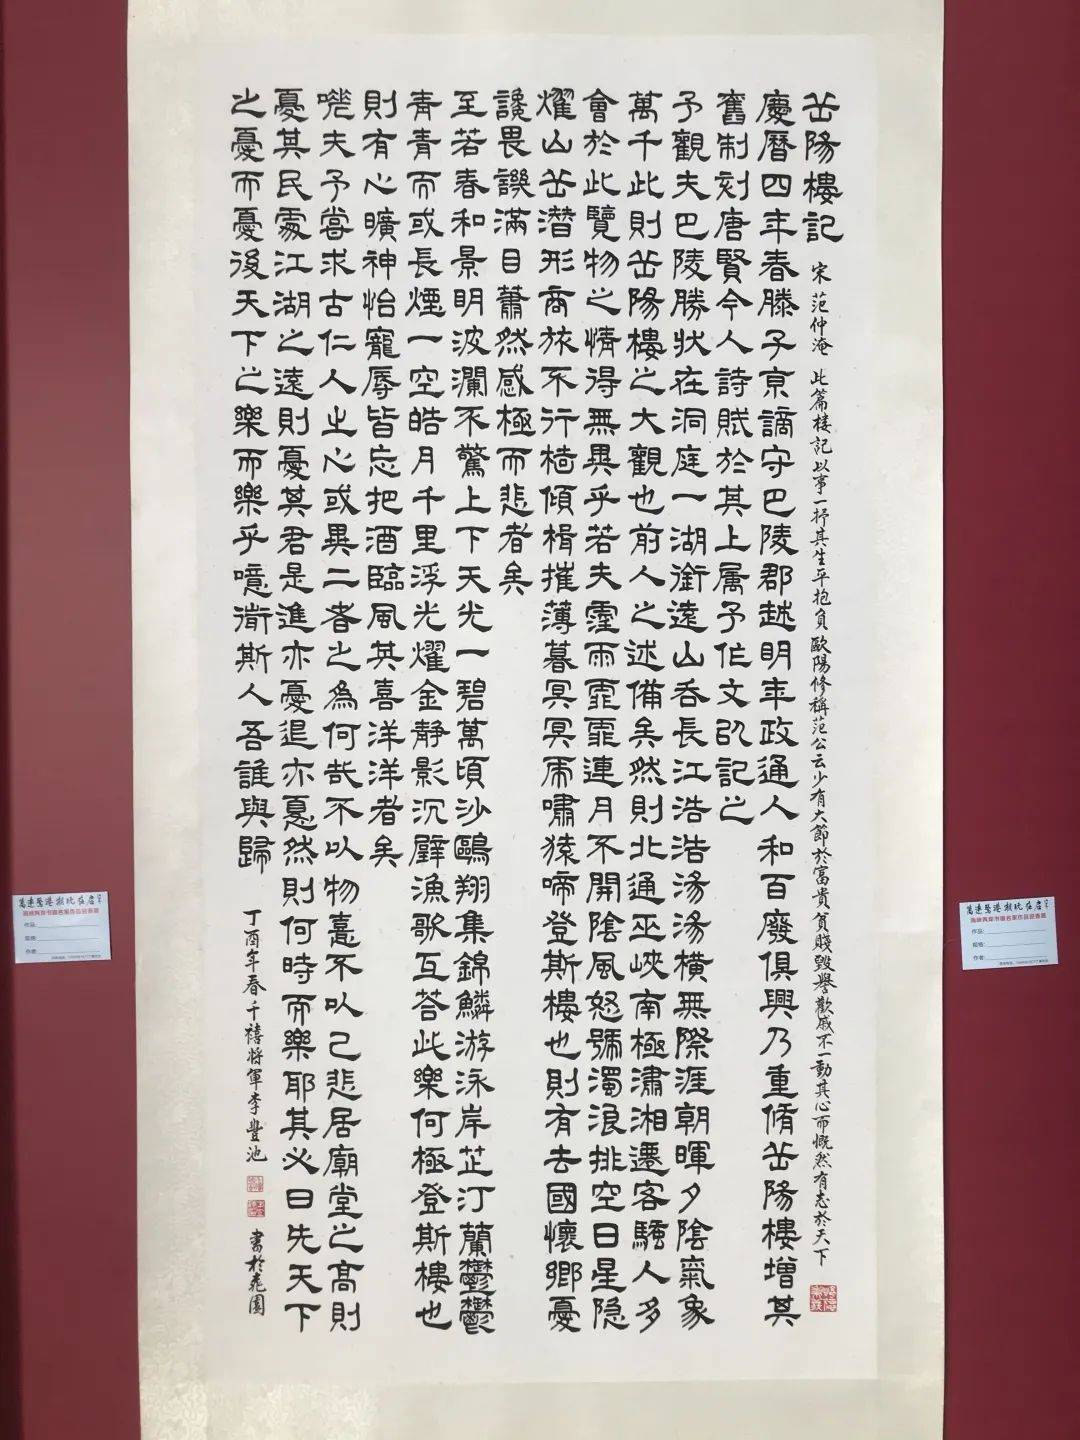 岳陽樓記
宋 范仲淹 此篇楼記以事一抒其生平抱負歐陽修稱范公云少有大節於富貴貧賤毀譽歡戚不一動其心而慨然有志於天下
慶曆四年春滕子京謫守巴陵郡越明年政通人和百廢俱興乃重脩岳陽樓增其
舊制刻唐賢今人詩賦於其上属予作文以記之
予觀夫巴陵勝状在洞庭一湖銜遠山吞長江浩浩湯湯横無際涯朝暉夕陰氣象
萬千此則岳陽樓之大觀也前人之述備矣然則北通巫峽南極瀟湘遷客騷人多
會於此覽物之情得無異乎若夫霪雨霏霏連月不開陰風怒號濁浪排空日星隐
燿山岳潜形商旅不行樯傾楫摧薄暮冥冥乕嘯猿啼登斯樓也則有去國懷鄉憂
讒畏譏滿目蕭然感極而悲者矣
至若春和景明波瀾不驚上下天光一碧萬頃沙鷗翔集錦鱗游泳岸芷汀蘭鬱鬱
青青而或長煙一空皓月千里浮光燿金静影沉璧漁歌互荅此樂何極登斯樓也
則有心曠神怡寵辱皆忘把酒臨風其喜洋洋者矣
嗟夫予嘗求古仁人之心或異二者之為何哉不以物憙不以己悲居廟堂之高則
憂其民處江湖之遠則憂其君是進亦憂退亦憂然則何時而樂耶其必曰先天下
之憂而憂後天下之樂而樂乎噫微斯人吾誰與歸
丁酉年春千禧将軍李豐池
書於
園
作品:
规格:
作者:
作品:
规格:
作者: